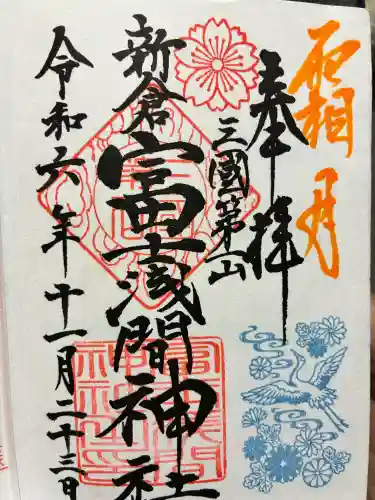 霜月
奉拝
三國第一山
新倉富士浅間神社
令和六年十一月二十三日